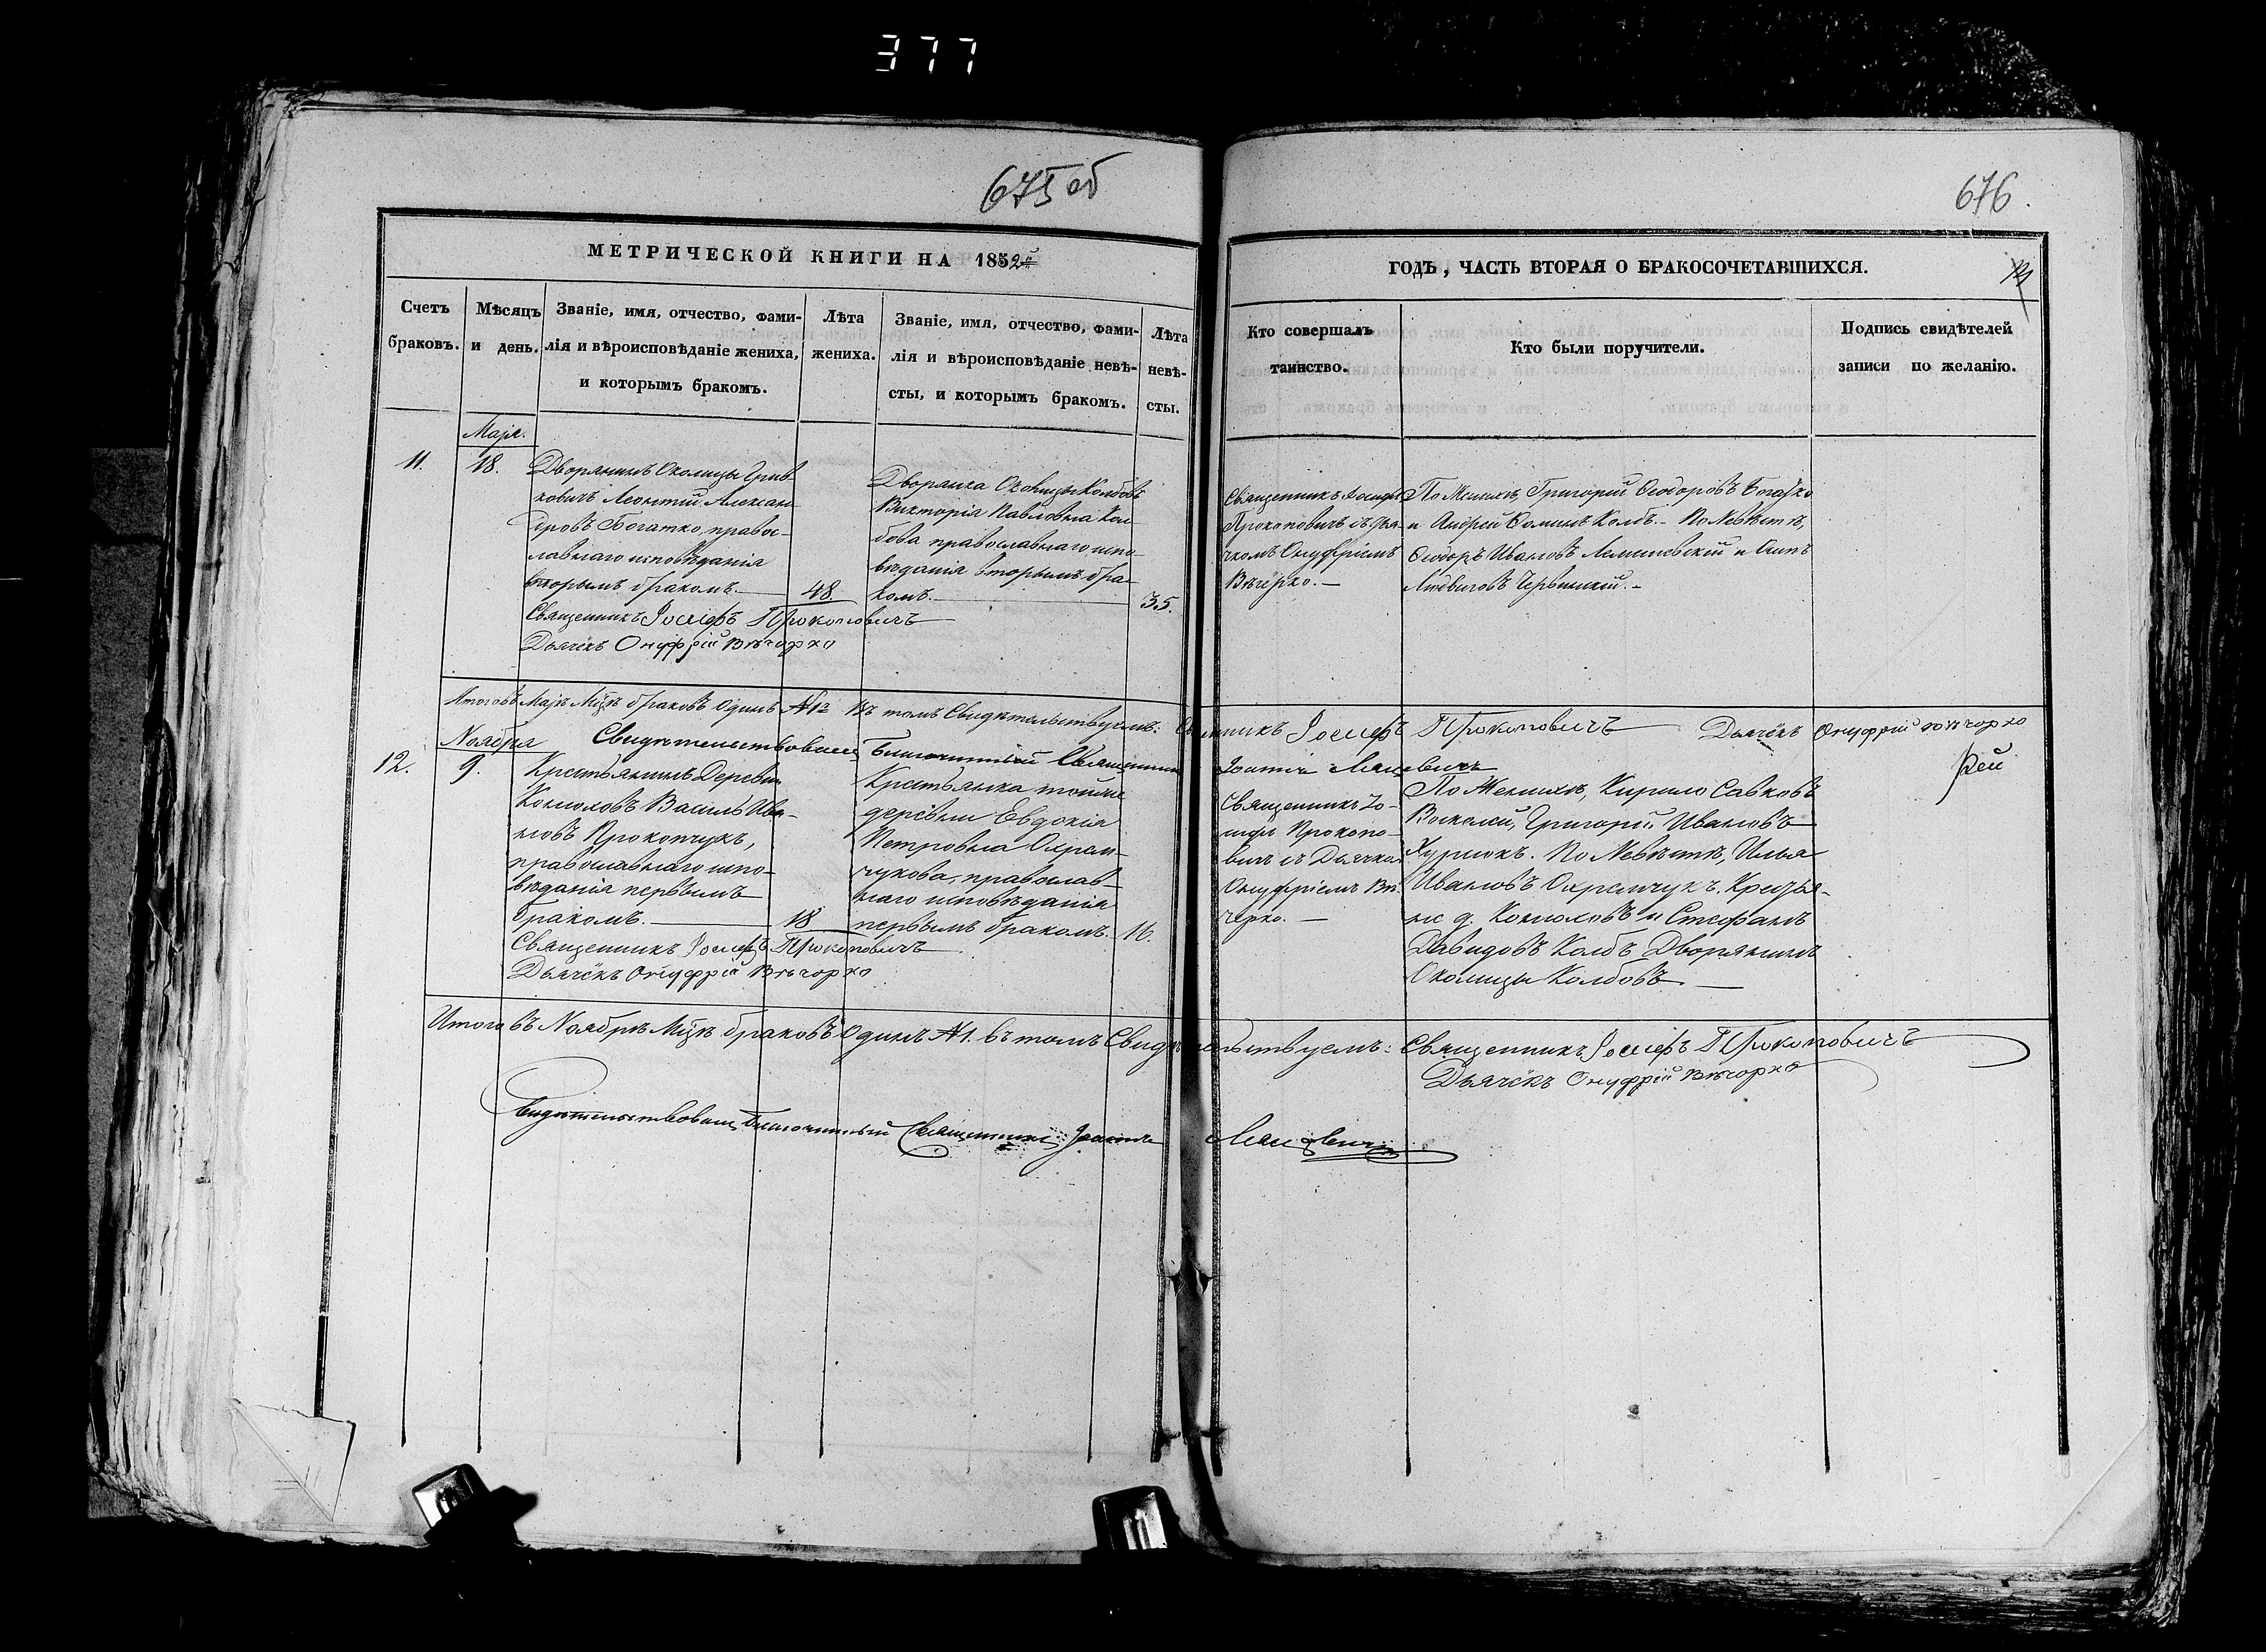 377
675 об
676.
МЕТРИЧЕСКОЙ КНИГИ НА 1852й
ГОДЪ, ЧАСТЬ ВТОРАЯ О БРАКОСОЧЕТАВШИХСЯ.
Счетъ
браковъ.
Мѣсяцъ
и день.
Званіе, имя, отчество, фами-
лія и вѣроисповѣданіе жениха,
и которымъ бракомъ.
Лѣта
жениха.
Званіе, имя, отчество, фами-
лія и вѣроисповѣданіе невѣ-
сты, и которымъ бракомъ.
Лѣта
невѣ-
сты.
Кто совершалъ
таинство.
Кто были поручители.
Подпись свидѣтелей
записи по желанію.
Маја.
11.
18.
Дворянинъ Околицы Грив-
ковичъ Леонтій Алексан-
дровъ Богатко, правос-
лавнаго исповѣданія
вторымъ бракомъ.
48
Дворянка Околицы Колбовъ
Викторія Павловна Кол-
бова православнаго испо-
вѣданія вторымъ бра-
комъ.
35.
Священникъ Іосифъ
Прокоповичъ съ Дья-
чкомъ Онуфріемъ
Вѣчерко.
По Женихѣ, Григорій Ѳеодоровъ Богатко
и Андрей Ѳоминъ Колбъ. По Невѣстѣ,
Ѳеодоръ Ивановъ и Осипъ
Людвиговъ Червинскій.
Священникъ Іосифъ Прокоповичъ
Дьячёкъ Онуфрій Вѣчорко
Итого въ Маѣ Мцѣ браковъ Одинъ №1й Въ томъ Свидѣтельствуемъ: Священникъ Іосифъ Прокоповичъ Дьячёкъ Онуфрій Вѣчорко
Ноября
Свидѣтельствовалъ Благочинный Священникъ Іоаннъ
12.
9.
Крестьянинъ Деревни
Конюховъ Василь Ива-
новъ Прокопчукъ,
православнаго испо-
вѣданія первымъ
бракомъ.
18
Крестьянка тойже
деревни Евдокія
Петровна Охрем-
чукова, православ-
наго исповѣданія
первымъ бракомъ.
16.
Священникъ Іо-
сифъ Прокопо-
вичъ съ Дьячкомъ
Онуфріемъ Вѣ-
черко.
По Женихѣ, Кирило Савковъ
Григорій Ивановъ
По Невѣстѣ, Илья
Ивановъ Охремчукъ, Крестья-
не д. Конюховъ и Стефанъ
Давидовъ Колбъ Дворянинъ
Околицы Колбовъ.
Священникъ Іосифъ Прокоповичъ
Дьячёкъ Онуфрій Вѣчорко
Итого въ Ноябрѣ Мцѣ браковъ Одинъ №1. въ томъ Свидѣтельствуемъ: Священникъ Іосифъ Прокоповичъ
Дьячёкъ Онуфрій Вѣчорко
Свидѣтельствовалъ Благочинный Священникъ Іоаннъ